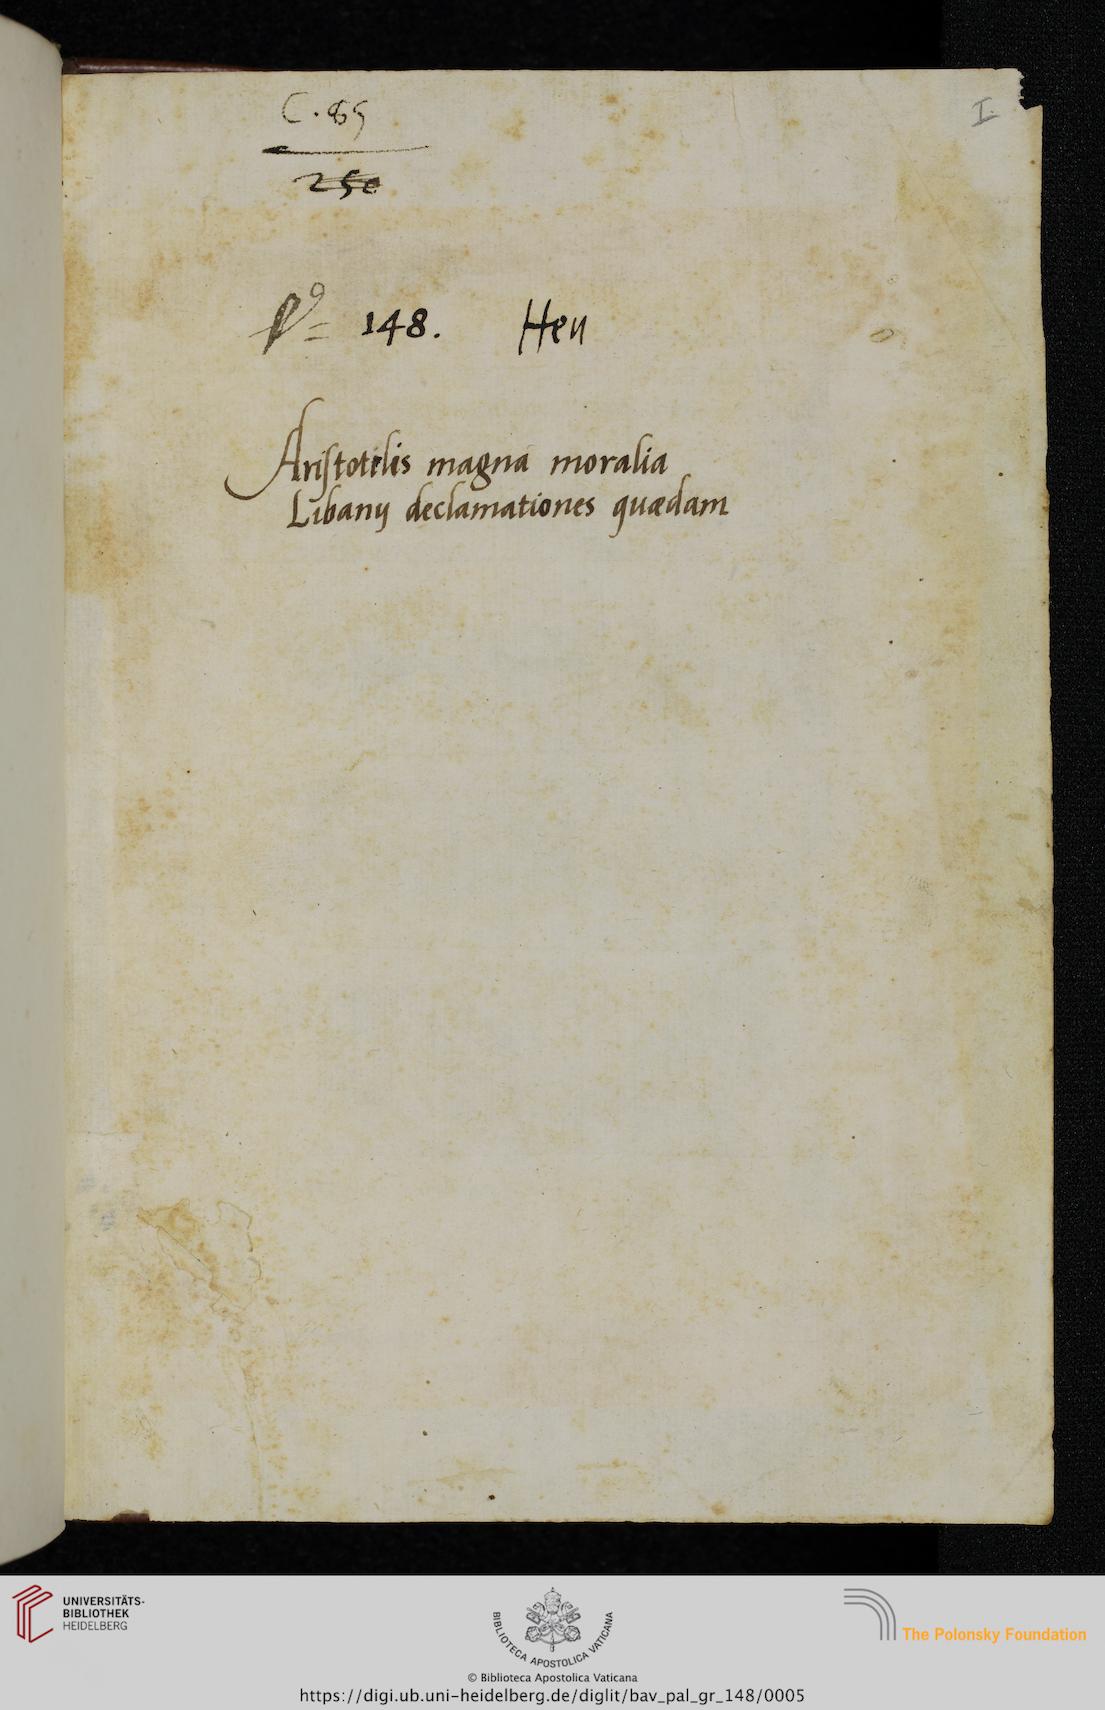 C. 85
I
250
148. Hen
Aristotelis magna moralia
Libanij declamationes quædam
UNIVERSITÄTS-
BIBLIOTHEK
HEIDELBERG
BIBLIOTECA APOSTOLICA VATICANA
The Polonsky Foundation
© Biblioteca Apostolica Vaticana
https://digi.ub.uni-heidelberg.de/diglit/bav_pal_gr_148/0005